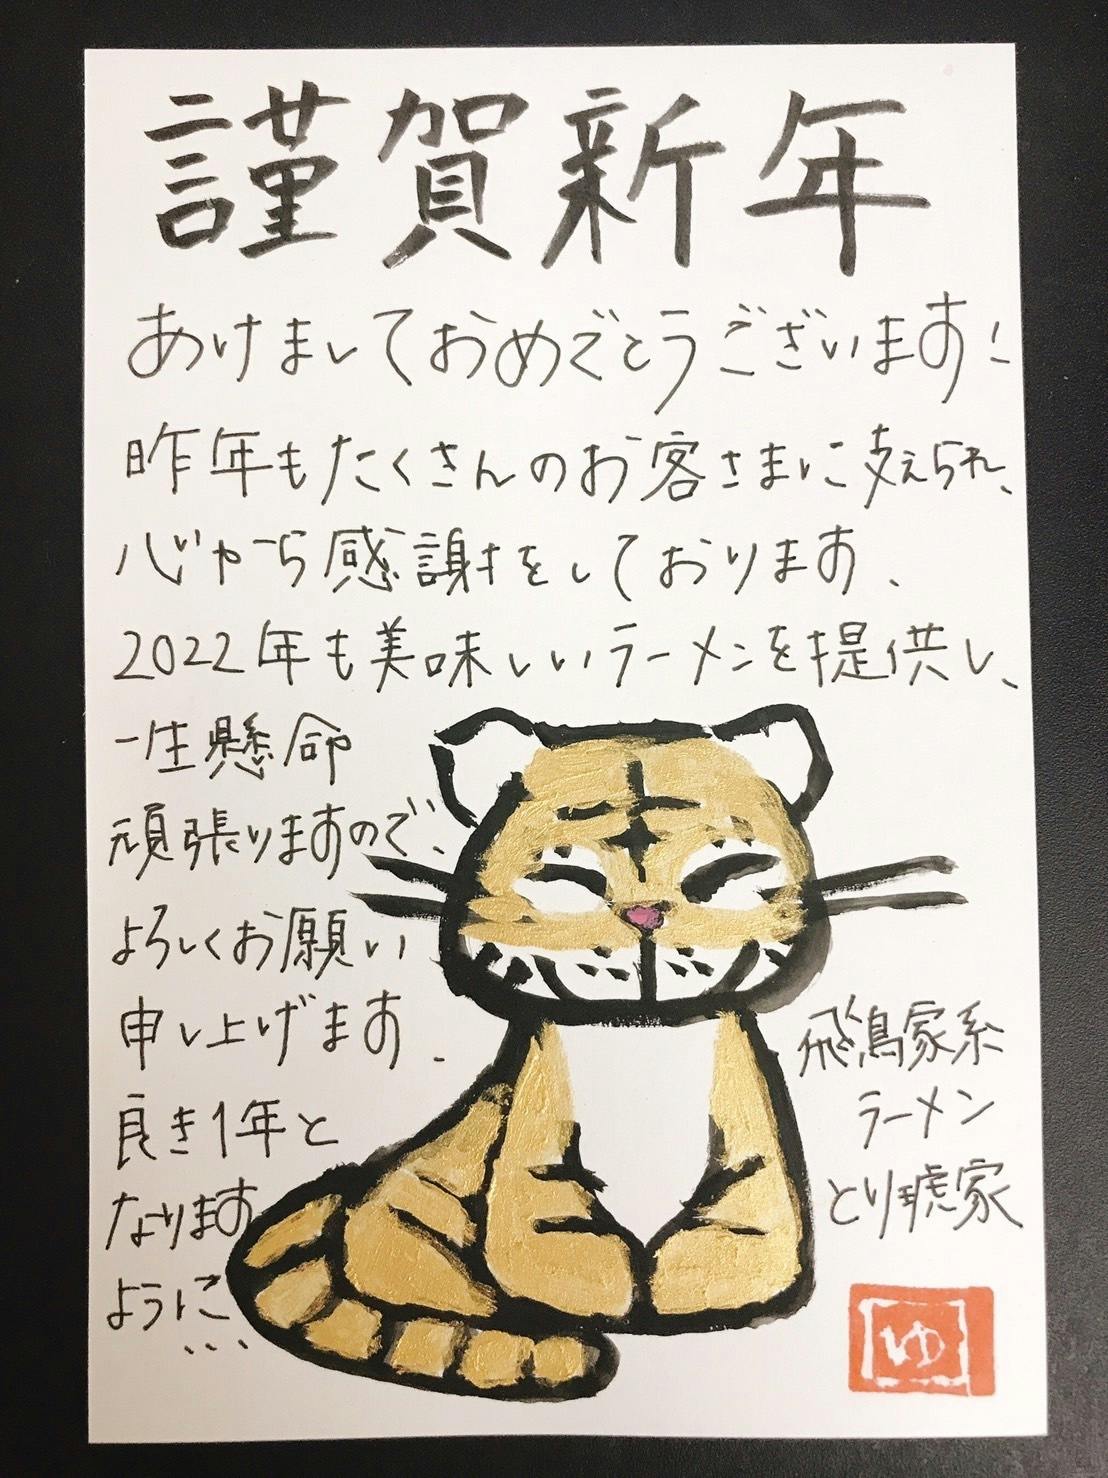 謹賀新年
あけましておめでとうございます！
昨年もたくさんのお客さまに支えられ、
心から感謝をしております、
2022年も美味しいラーメンを提供し、
一生懸命
頑張りますので、
よろしくお願い
申し上げます.
良き1年と
なります
ように、...
飛鳥家系
ラーメン
とり琥家
ゆ